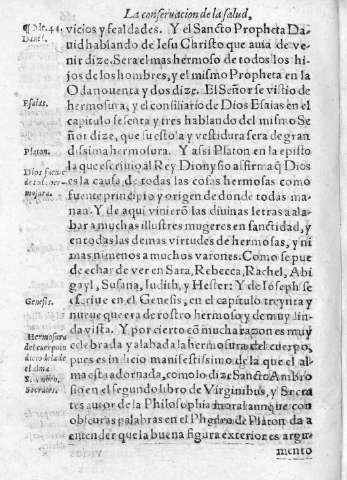 La conservacion de la salud,
¶ Ps. 44. vicios y fealdades. Y el Sancto Propheta Da
uid hablando de Iesu Christo que auia de ve-
nir dize. Sera el mas hermoso de todos los hi-
jos de los hombres, y el mismo Propheta en la
Oda nouenta y dos dize. El Señor se vistio de
Esaias. hermosura, y el consiliario de Dios Esaias en el
capitulo sesenta y tres hablando del mismo Se
ñor dize, que su estola y vestidura sera de gran
Platon. dissima hermosura. Y assi Platon en la episto
la que escriuio al Rey Dionysio affirma q̃ Dios
Dios fuente es la causa de todas las cosas hermosas como
fuente principio y origen de donde todas ma-
nan. Y de aqui vinierõ las diuinas letras a ala-
bar a muchas illustres mugeres en sanctidad, y
en todas las demas virtudes de hermosas, y ni
mas ni menos a muchos varones. Como se pue
de echar de ver en Sara, Rebecca, Rachel, Abi
gayl, Susana, Iudith, y Hester: Y de Ioseph se
Genesis. escriue en el Genesis, en el capitulo treynta y
nueue que era de rostro hermoso y de muy lin
Hermosura da vista. Y por cierto cõ mucha razon es muy
del cuerpo celebrada y alabada la hermosura del cuerpo,
pues es indicio manifestissimo de la que el al-
el alma ma esta adornada, como lo dize Sancto Ambro
sio en el segundo libro de Virginibus, y Socra
Socrates. tes autor de la Philosophia moral aunque con
obscuras palabras en el Phedro de Platon da a
entender que la buena figura exterior es argu
mento